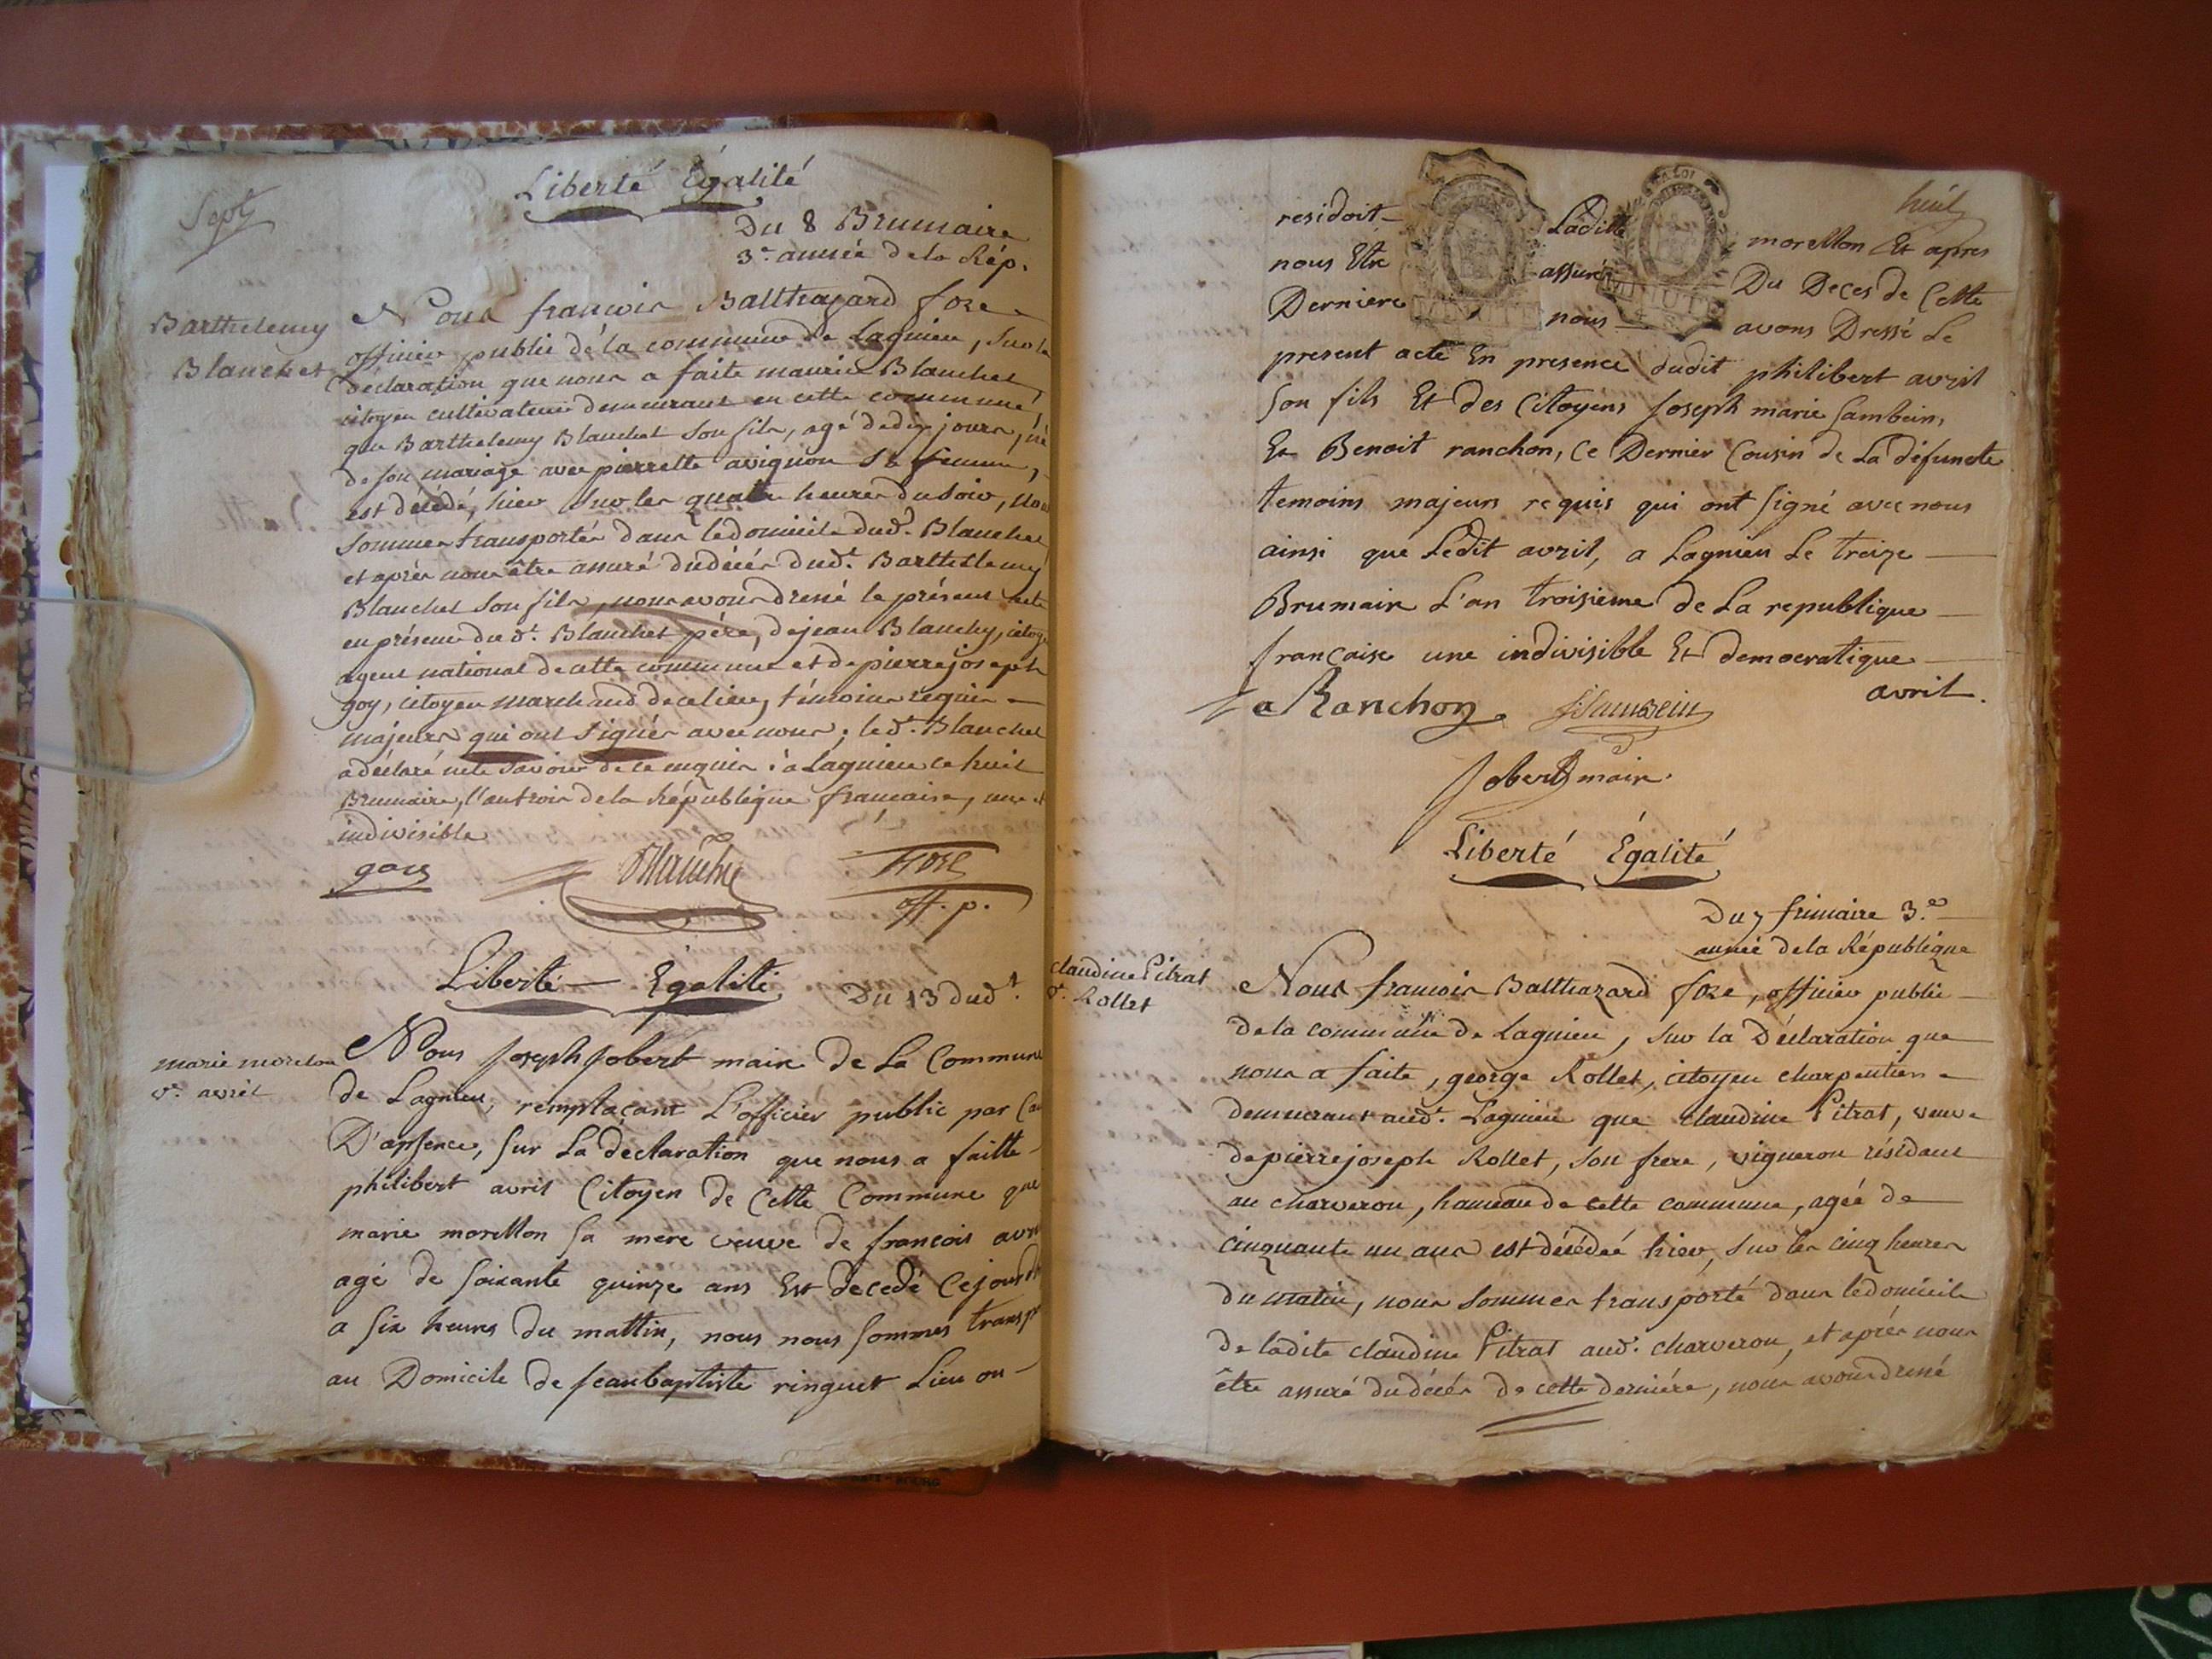 Sept
Liberté Égalité
Du 8 Brumaire
3.e année de la Rép.
Barthelemy
Blanchet
Nous françois Balthazard foze
officier public de la commune de Lagnieu, sur la
déclaration que nous a faite maurice Blanchet,
citoyen cultivateur demeurant en cette commune,
que Barthelemy Blanchet son fils, agé de dix jours, né
de son mariage avec pierrette avignon sa femme,
est décédé, hier sur les quatre heures du soir, nous
sommes transportés dans le domicile dud.t Blanchet
et après nous être assuré du décès dud.t Barthelemy
Blanchet son fils, nous avons dressé le présent acte
en présence du d.t Blanchet père, de jean Blanchy, citoyen
agent national de cette commune et de pierre joseph
goy, citoyen marchand de ce lieu, témoins requis
majeurs qui ont signés avec nous, led.t Blanchet
a déclaré ne le savoir de ce enquis : à Lagnieu ce huit
Brumaire, l'an trois de la République française, une et
indivisible
goy Blanchy foze
off. p.
Liberté — Egalité Du 13 dud.t
marie morelon
v.e avril
Nous Joseph Jobert maire de La Commune
de Lagnieu, remplaçant L'officier public par Cau
D'apsence, sur La déclaration que nous a faitte
philibert avril Citoyen de Cette Commune que
marie morellon sa mere veuve de françois avril
agé de soixante quinze ans Est decedé Cejourd'h
a six heures du mattin, nous nous sommes transp
au Domicile de Jean baptiste ringuet Lieu ou
huit
residoit Laditte morellon Et apres
nous Etre assuré Du Deces de Cette
Derniere nous avons Dressé Le
present acte En presence dudit philibert avril
son fils Et des Citoyens Joseph marie Sambein,
Et Benoit ranchon, Ce Dernier Cousin de La défuncte
temoins majeurs requis qui ont signé avec nous
ainsi que Ledit avril, a Lagnieu Le treize
Brumaire L'an troisieme de La republique
française une indivisible Et democratique
avril.
Ranchon Sambein
Jobert maire.
Liberté Égalité
Du 7 frimaire 3.e
année de la République
claudine Pitrat
v.e Rollet
Nous françois Balthazard foze, officier public
de la commune de Lagnieu, sur la Déclaration que
nous a faite, george Rollet, citoyen charpentier
demeurant aud.t Lagnieu que claudine Pitrat, veuve
de pierre joseph Rollet, son frere, vigneron résidant
au charveron, hameau de cette commune, agée de
cinquante un ans est décédée hier, sur les cinq heures
du matin, nous sommes transporté dans le domicile
de ladite claudine Pitrat aud.t charveron, et après nous
être assuré du décès de cette derniére, nous avons dressé